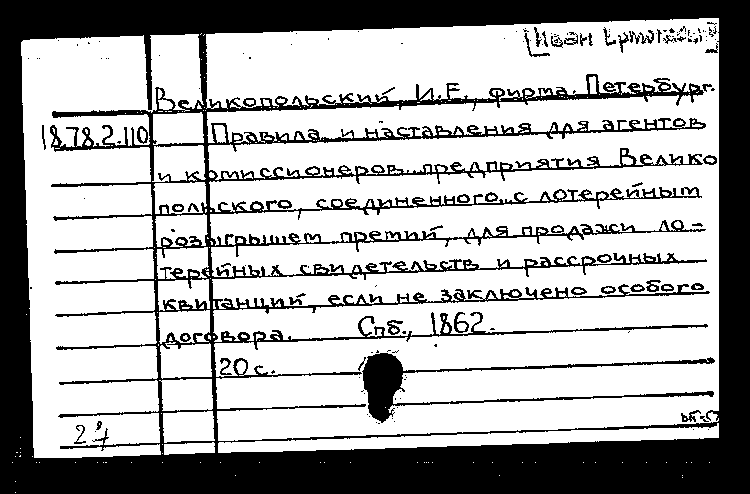 [Иван
Великопольский, И.Е., фирма. Петербург.
18.78.2.110. Правила и наставления для агентов
и комиссионеров предприятия Велико
польского, соединенного с лотерейным
розыгрышем премий, для продажи ло=
терейных свидетельств и рассрочных
квитанций, если не заключено особого
договора. Спб., 1862.
20 с.